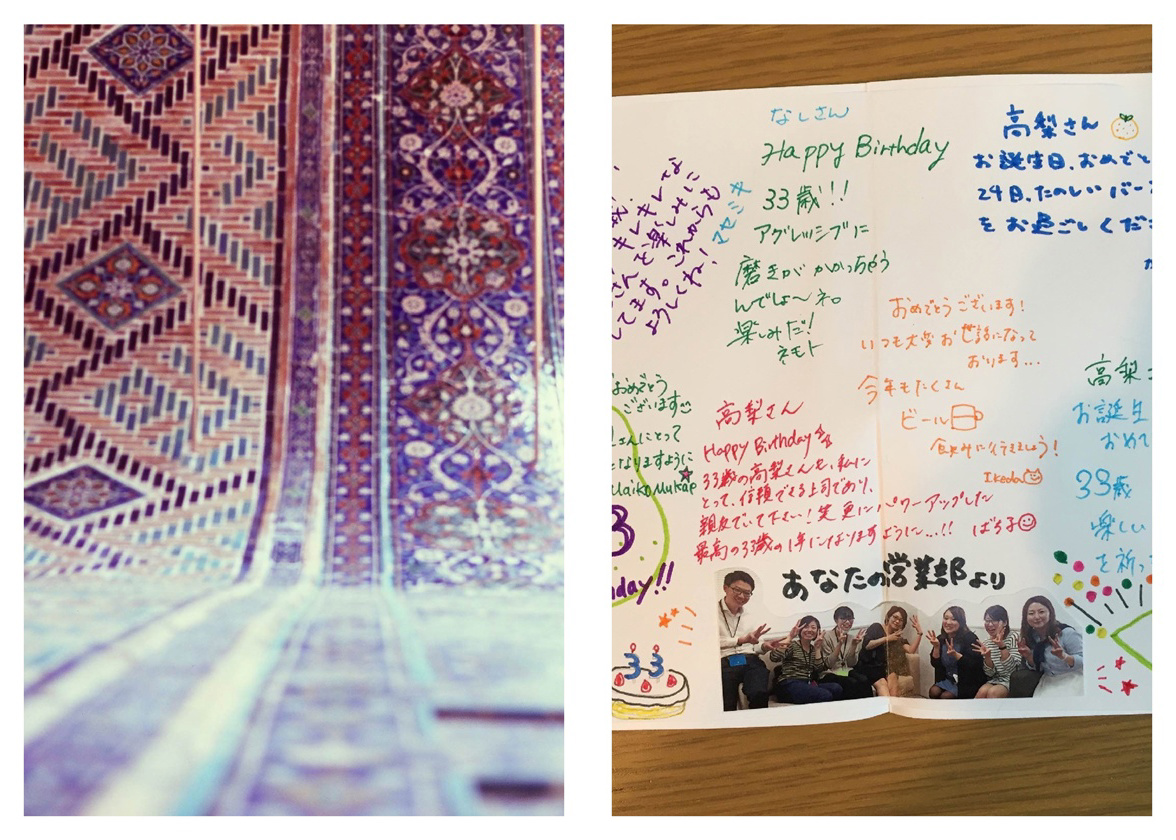 なしさん
Happy Birthday
33歳!!
アグレッシブに
磨きがかかっちゃう
んでしょ〜ネ。
楽しみだ!
ネモト
高梨さん
お誕生日、おめでと
29日、たのしいバー
をお過ごしくだ
キレキレな
さんを楽しみに
してます。これからも
よろしくね!
おめでとうございます!
いつも大変お世話になって
おります...
今年もたくさん
ビール
飲みに行きましょう!
Ikeda
おめでとう
ございます
さんにとって
となりますように
Maiko Mukai
高梨さん
Happy Birthday
33歳の高梨さんも、私に
とって、信頼できる上司であり、
親友でいて下さい!笑 更にパワーアップした
最高の33歳の1年になりますように...!!
高梨
お誕生
おめ
33歳
楽しい
を祈っ
day!!
あなたの営業部より
33